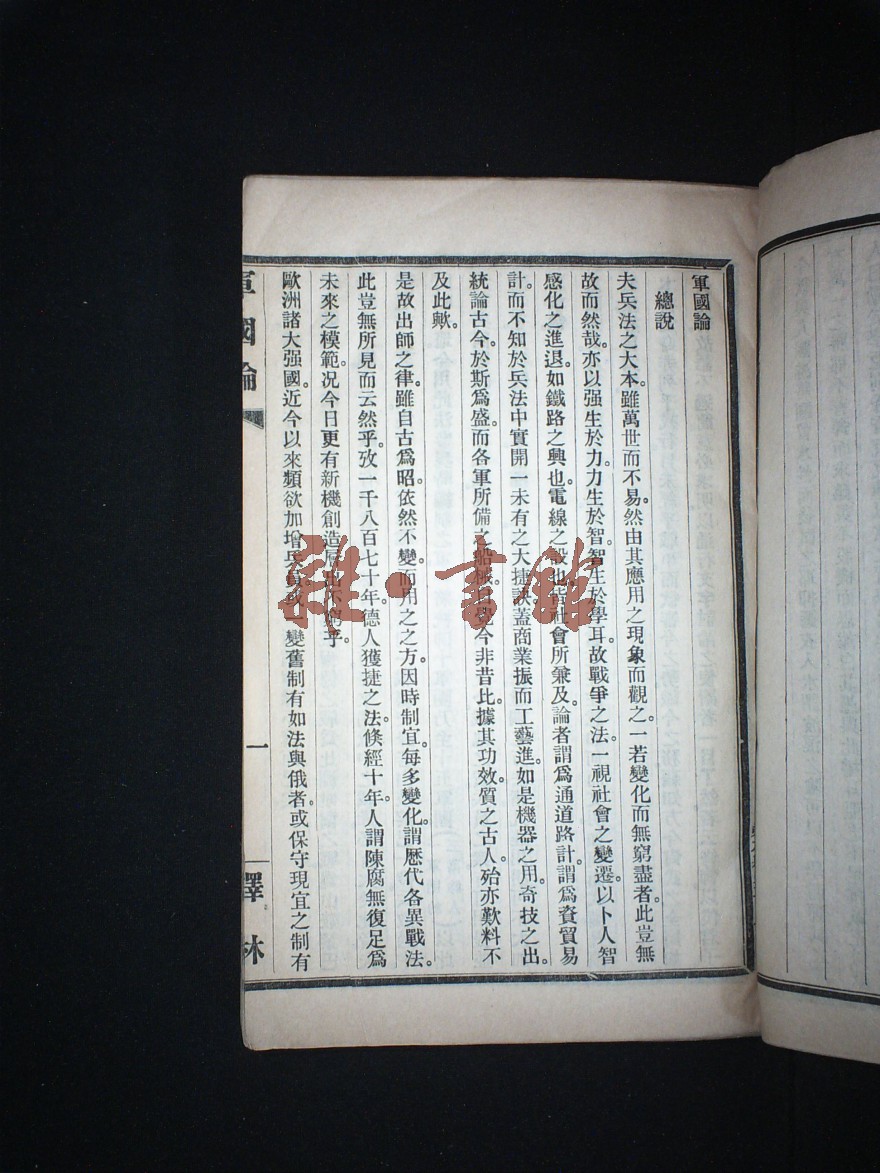 軍國論
總說
夫兵法之大本。雖萬世而不易。然由其應用之現象而觀之。一若變化而無窮盡者。此豈無
故而然哉。亦以强生於力。力生於智。智生於學耳。故戰爭之法。一視社會之變遷。以卜人智
感化之進退。如鐵路之興也。電線之設也。皆社會所兼及。論者謂爲通道路計。謂爲資貿易
計。而不知於兵法中實開一未有之大捷訣。蓋商業振而工藝進。如是機器之用。奇技之出。
統論古今。於斯爲盛。而各軍所備之船械。覺今非昔比。據其功效。質之古人。殆亦歎料不
及此歟。
是故出師之律。雖自古爲昭。依然不變。而用之之方。因時制宜。每多變化。謂歷代各異戰法。
此豈無所見而云然乎。攷一千八百七十年。德人獲捷之法。倐經十年。人謂陳腐無復足爲
未來之模範。况今日更有新機創造層出不窮乎。
歐洲諸大强國。近今以來。類欲加增兵員。或一變舊制。有如法與俄者。或保守現宜之制。有
軍國論
一
譯林
雜·書館